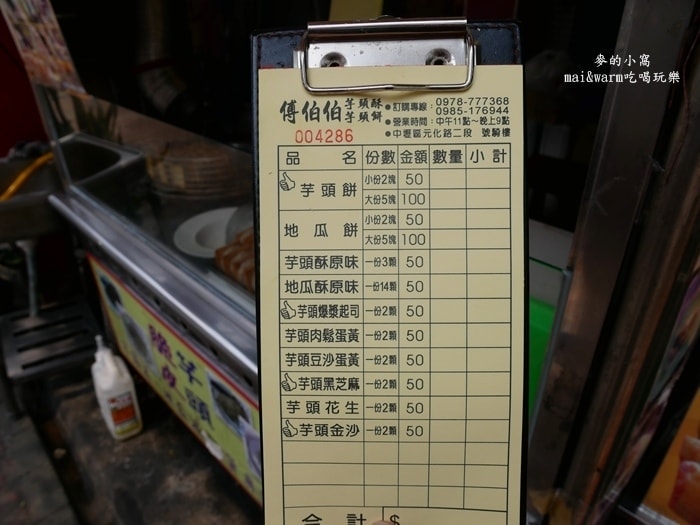 麥的小窩
mai&warm吃喝玩樂
傅伯伯 芋頭酥 芋頭餅
●訂購專線:0978-777368
0985-176944
●營業時間:中午11點~晚上9點
●中壢區元化路二段 號騎樓
004286
品名 份數 金額 數量 小計
芋頭餅 小份2塊 50
大份5塊 100
地瓜餅 小份2塊 50
大份5塊 100
芋頭酥原味 一份3顆 50
地瓜酥原味 一份14顆 50
芋頭爆漿起司 一份2顆 50
芋頭肉鬆蛋黃 一份2顆 50
芋頭豆沙蛋黃 一份2顆 50
芋頭黑芝麻 一份2顆 50
芋頭花生 一份2顆 50
芋頭金沙 一份2顆 50
合計 $